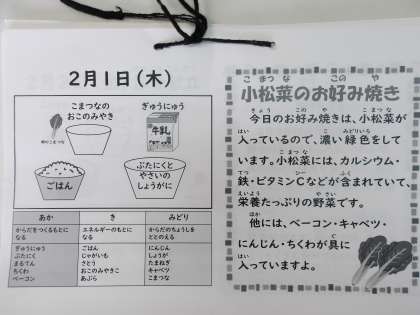 2月1日(木)
こまつなの
おこのみやき
ぎゅうにゅう
牛乳
ごはん
ぶたにくと
やさいの
しょうがに
あか
き
みどり
からだをつくるもとに
なる
エネルギーのもとに
なる
からだのちょうしを
ととのえる
ぎゅうにゅう
ぶたにく
まるてん
ちくわ
ベーコン
ごはん
じゃがいも
さとう
おこのみやきこ
あぶら
にんじん
しょうが
たまねぎ
キャベツ
こまつな
こまつな この や
小松菜のお好み焼き
きょう この や こまつな
今日のお好み焼きは、小松菜が
はい こ みどりいろ
入っているので、濃い緑色をして
こまつな
います。小松菜には、カルシウム・
てつ ふく
鉄・ビタミンCなどが含まれていて、
えいよう やさい
栄養たっぷりの野菜です。
ほか
他には、ベーコン・キャベツ・
ぐ
にんじん・ちくわが具に
はい
入っていますよ。